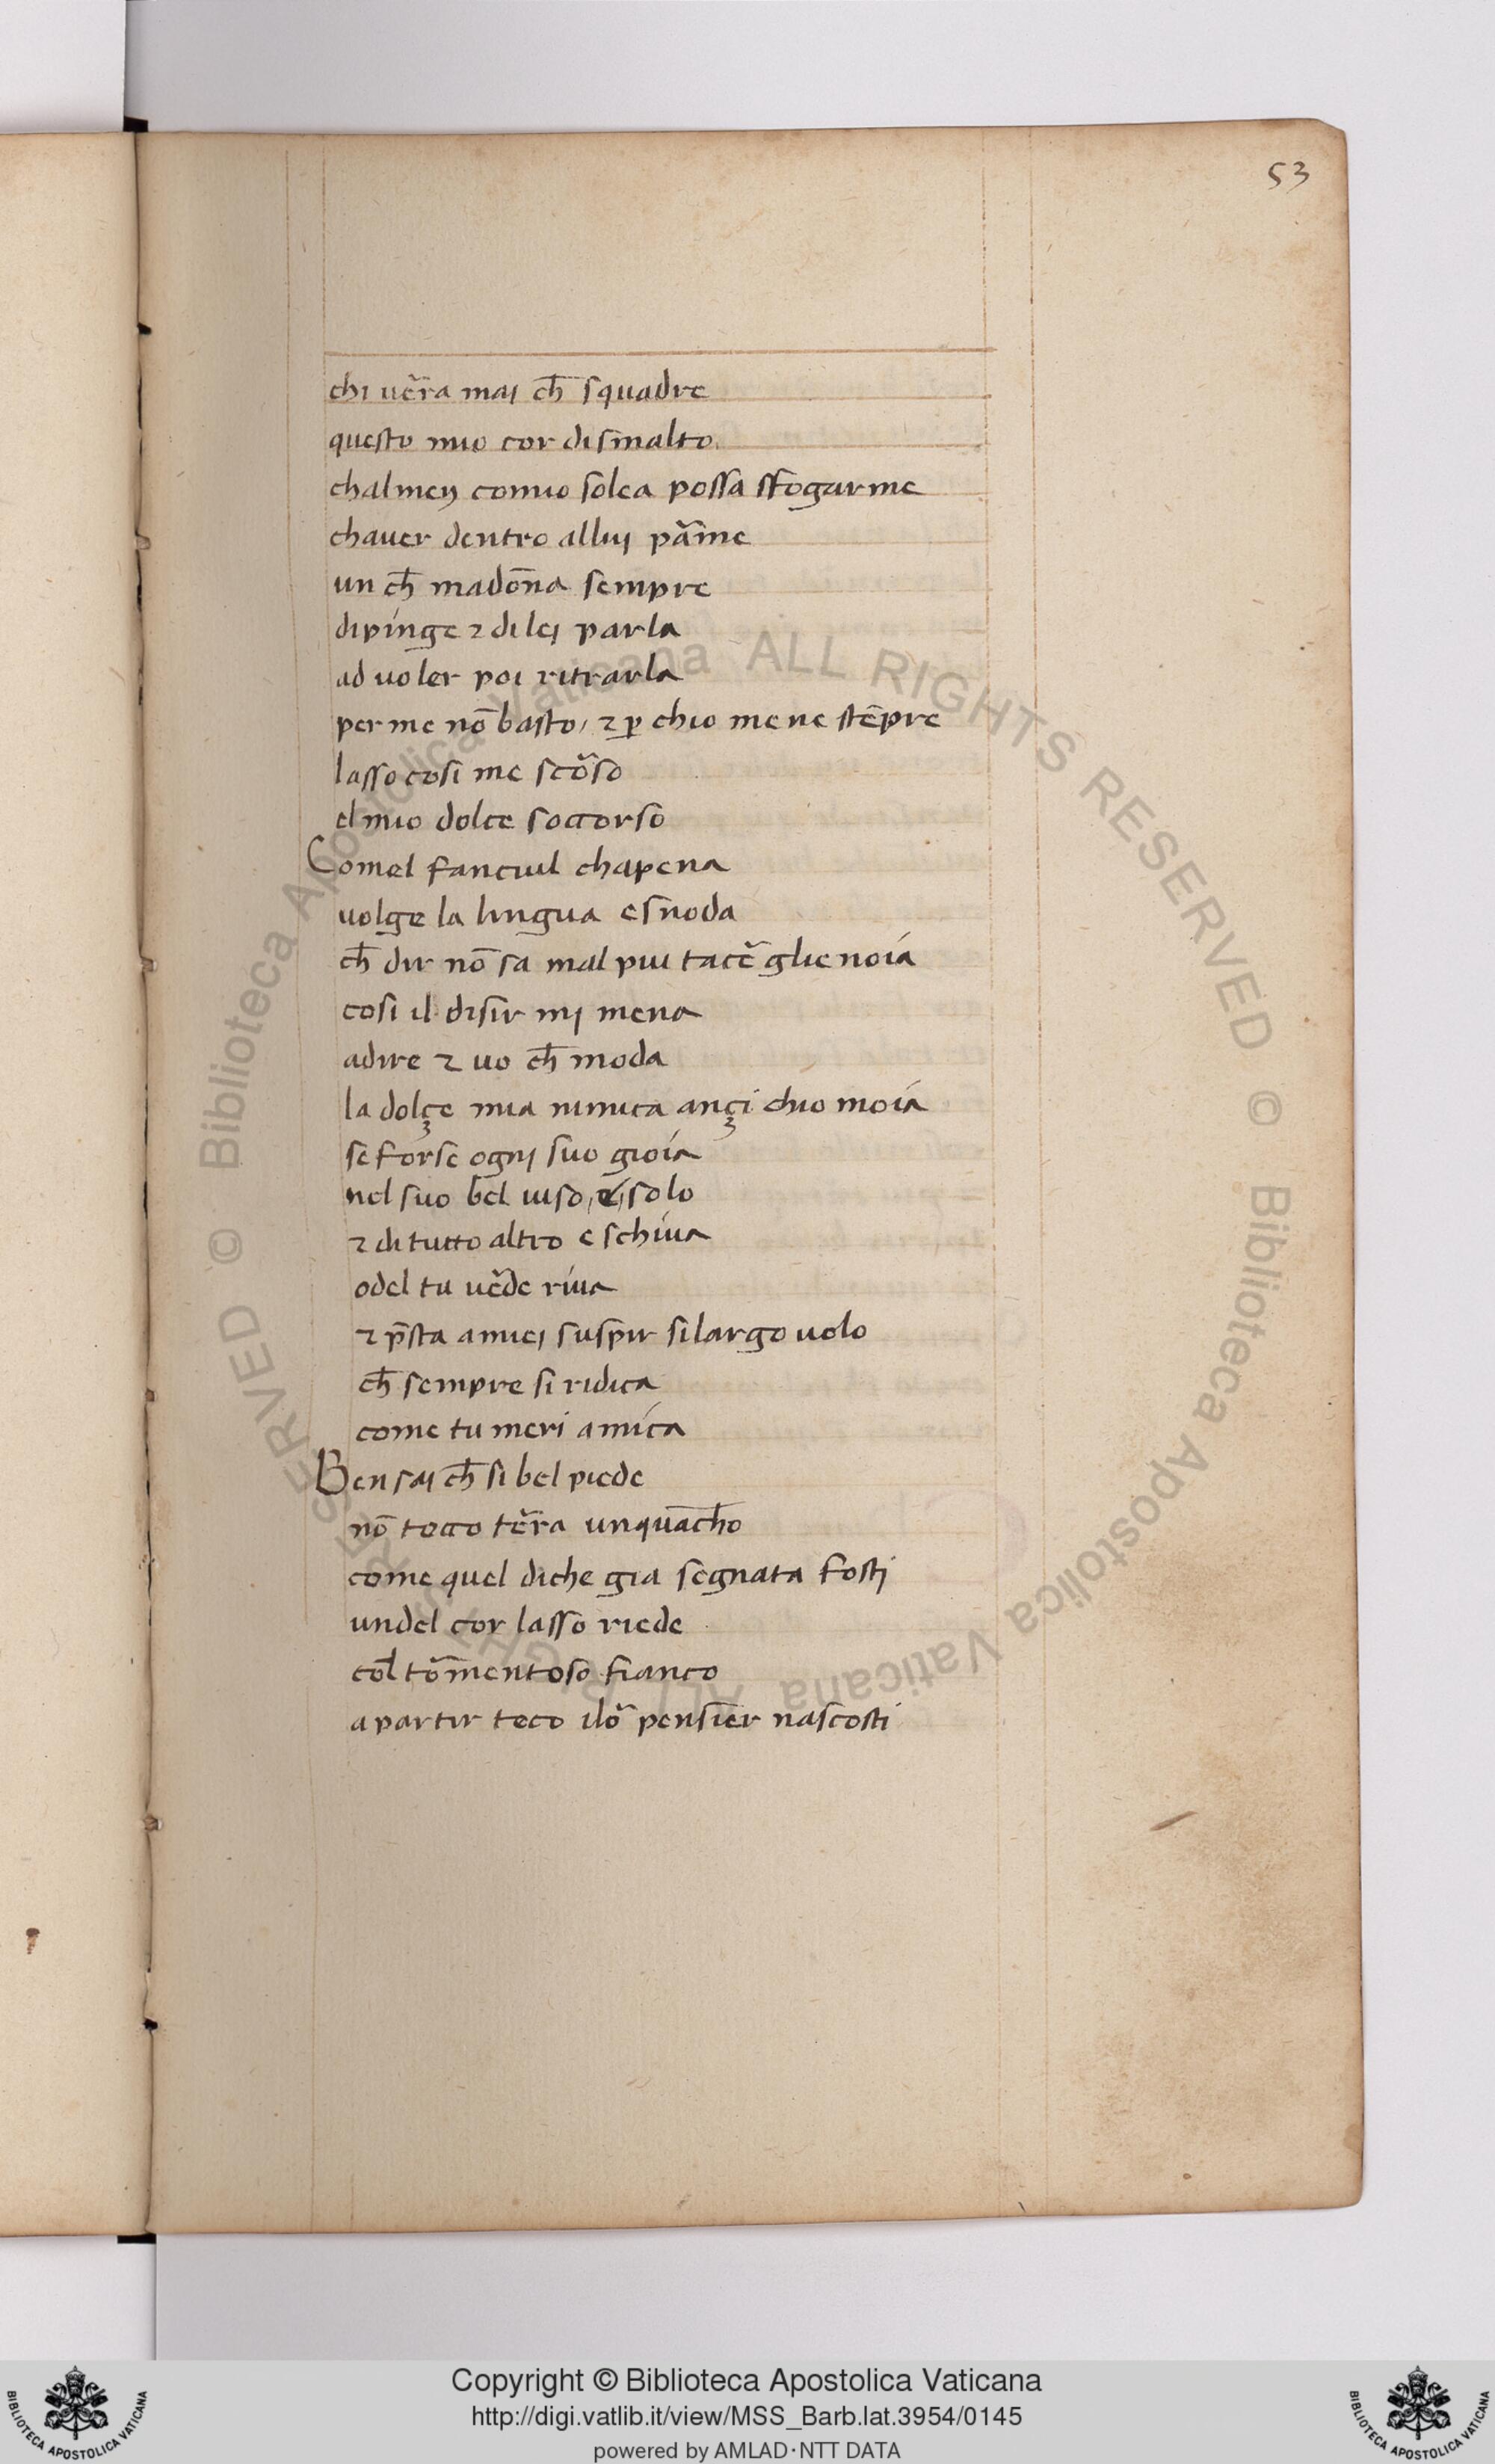 53
chi ue᷑ra mai ch̅ squadre
questo mio cor di smalto
chalmeɳ comio solea possa sfogarme
chauer dentro alluj pa᷑me
un ch̅ mado̅na sempre
dipinge ⁊ di lej parla
ad uoler poi ritrarla
per me no̅ basto, ⁊ ꝑ chio me ne ste̅pre
lasso cosi me sco᷑so
el mio dolce soccorso
Comel fanciul chapena
uolge la lingua e snoda
ch̅ dir no̅ sa mal piu tace᷑ glie noia
cosi il disir mj mena
adire ⁊ uo ch̅ moda
la dolçe mia nimica ançi chio moia
se forse ogni suo gioia
nel suo bel uiso, e, solo
⁊ di tutto altro e schiua
odel tu ue᷑de riua
⁊ p̅sta a miej suspir si largo uolo
ch̅ sempre si ridica
come tu meri amica
Ben saj ch̅ si bel piede
no̅ tocco te᷑ra unquacho
come quel di che gia segnata fostj
undel cor lasso riede
col to᷑mentoso fianco
a partir teco i lo᷑ pensier nascosti
Copyright © Biblioteca Apostolica Vaticana
http://digi.vatlib.it/view/MSS_Barb.lat.3954/0145
powered by AMLAD·NTT DATA
BIBLIOTECA APOSTOLICA VATICANA
BIBLIOTECA APOSTOLICA VATICANA
© Biblioteca Apostolica Vaticana ALL RIGHTS RESERVED © Biblioteca Apostolica Vaticana ALL RIGHTS RESERVED